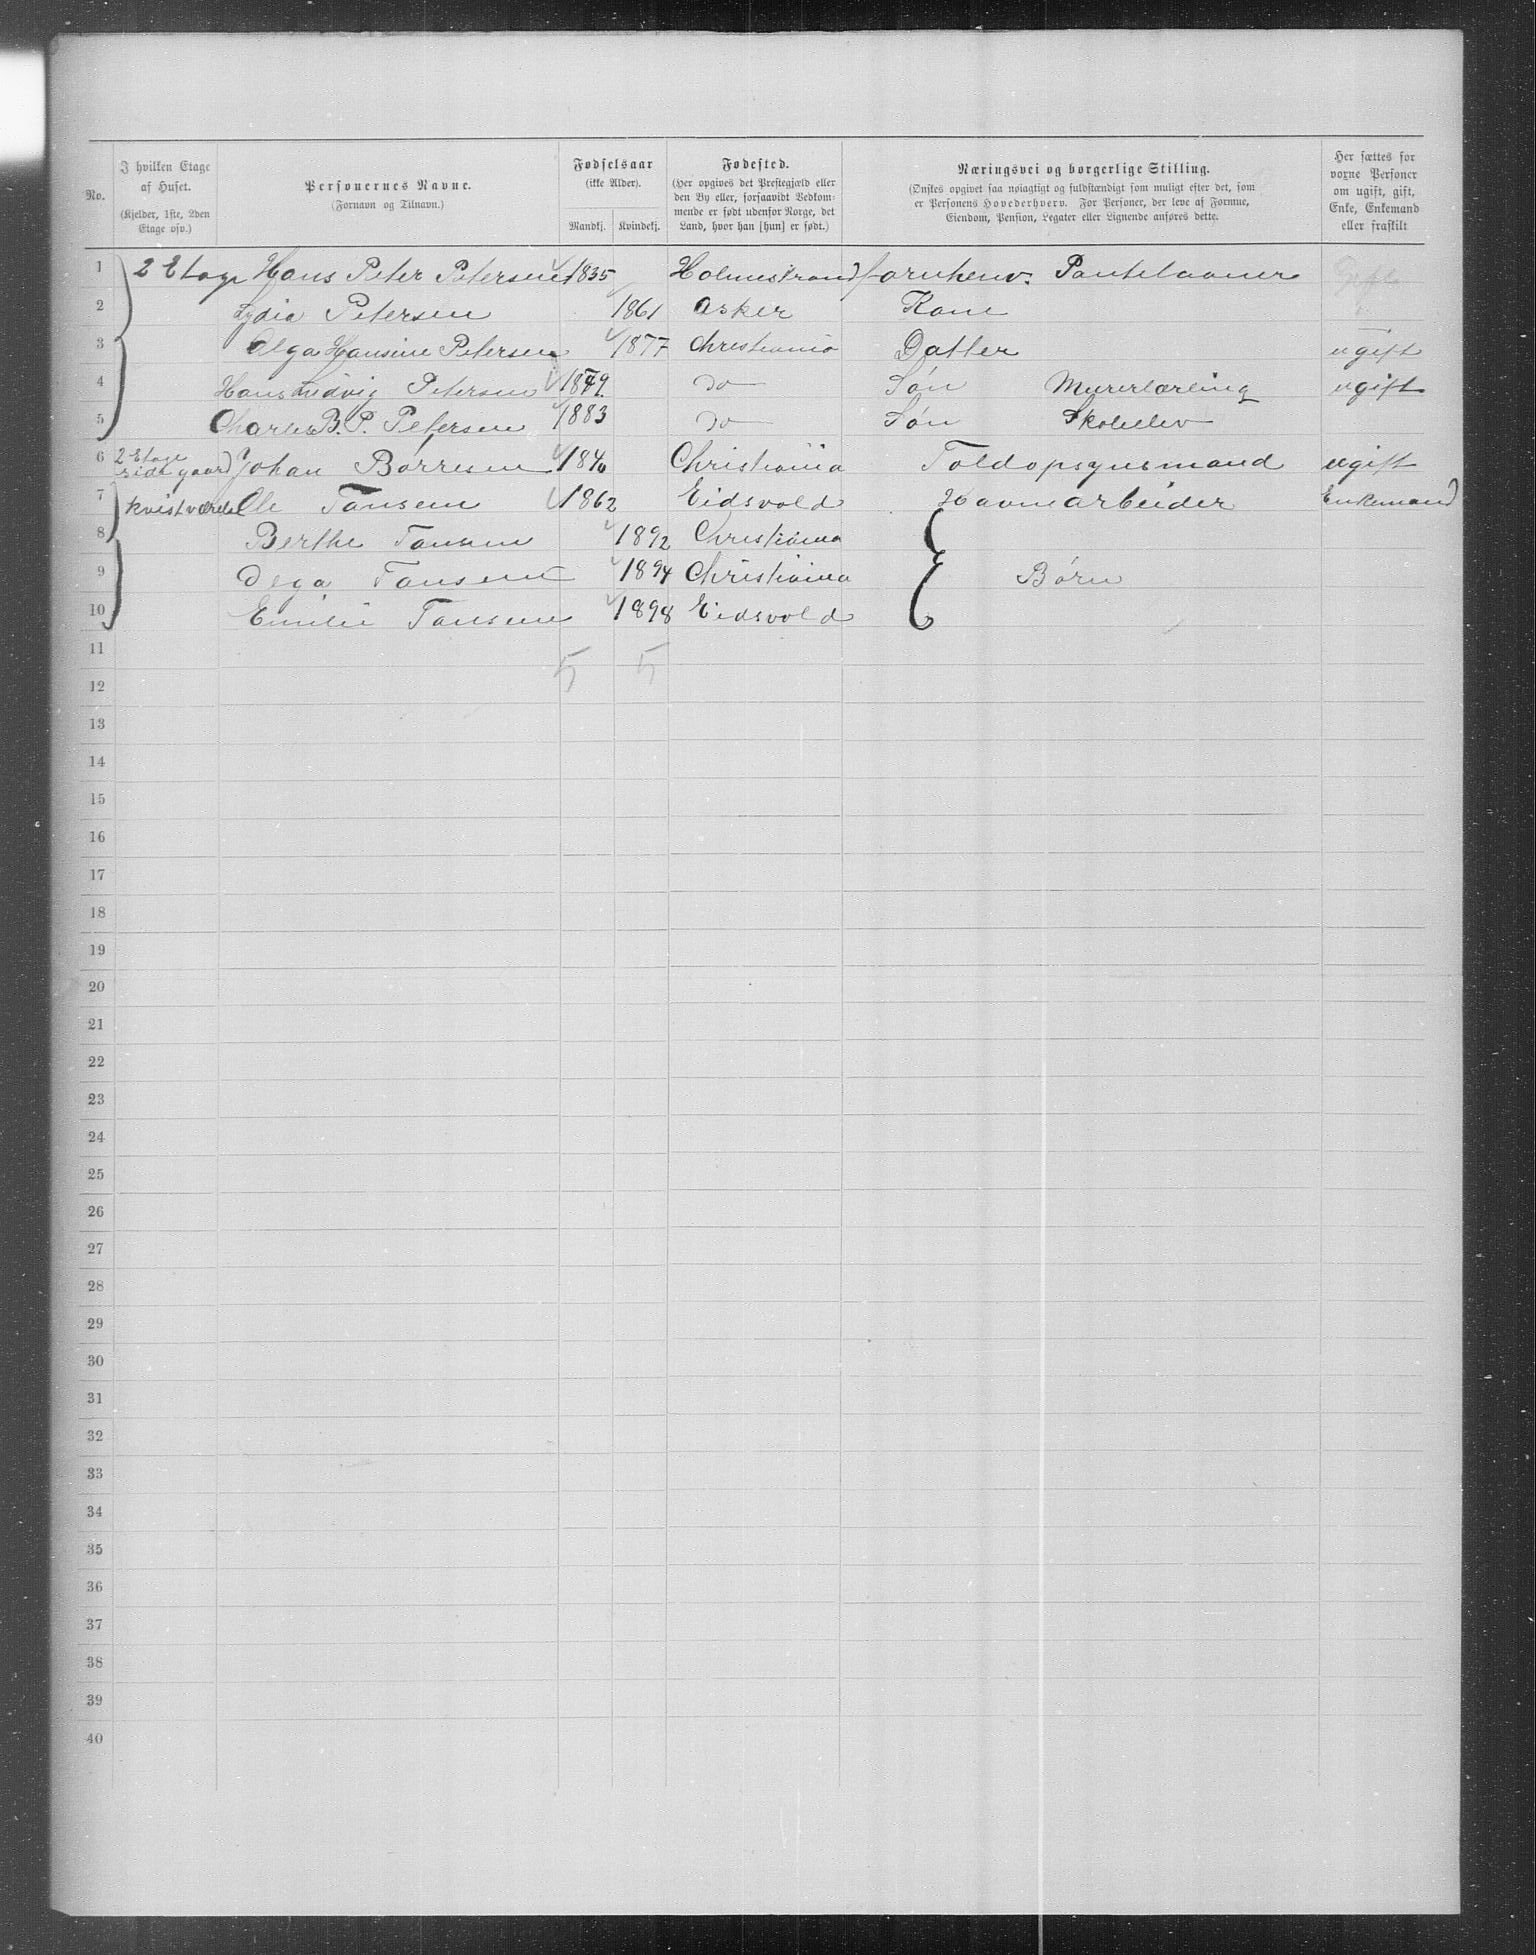 No. I hvilken Etage af Huset. (Kjelder, 1ste, 2den Etage osv.) Personernes Navne. (Fornavn og Tilnavn.) Fødselsaar (ikke Alder). Mandkj. Kvindekj. Fødested. (Her opgives det Prestegjæld eller den By eller, forsaavidt Vedkommende er født udenfor Norge, det Land, hvor han [hun] er født.) Næringsvei og borgerlige Stilling. (Ønskes opgivet saa nøiagtigt og fuldstændigt som muligt efter det, som er Personens Hovederhverv. For Personer, der leve af Formue, Eiendom, Pension, Legater eller Lignende anføres dette. Her sættes for voxne Personer om ugift, gift, Enke, Enkemand eller fraskilt
1 2 Etage Hans Peter Petersen 1835 Holmestrand forhenv. Pantelaaner Gift
2 Lydia Petersen 1861 Asker Kone
3 Olga Hansine Petersen 1877 Christiania Datter ugift
4 Hans Ludvig Petersen 1879 do Søn Murerlærling ugift
5 Charles B. P. Petersen 1883 do Søn Skoleelev
6 2 Etage i gaard Johan Børresen 1840 Christiania Toldopsynsmand ugift
7 kvistværelse Ole Tansem 1862 Eidsvold Havnearbeider Enkemand
8 Berthe Tansem 1892 Christiania
9 Dega Tansem 1894 Christiania Børn
10 Emilie Tansem 1898 Eidsvold
11
5 5
12
13
14
15
16
17
18
19
20
21
22
23
24
25
26
27
28
29
30
31
32
33
34
35
36
37
38
39
40